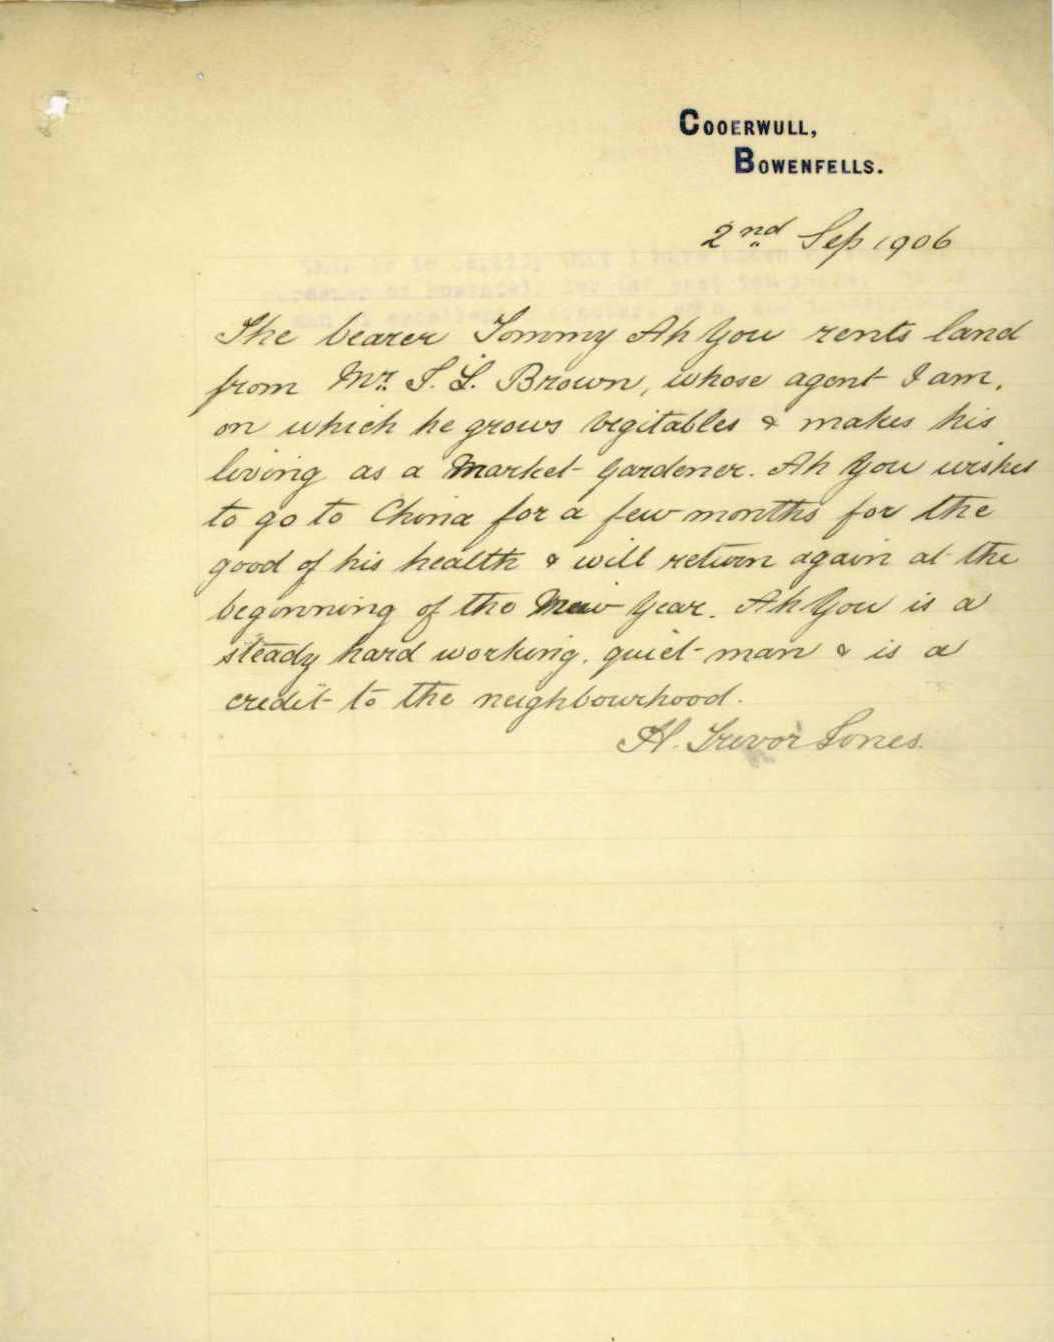 COOERWULL,
BOWENFELLS.
2nd Sep 1906
The bearer Tommy Ah You rents land
from Mr. T. L. Brown, whose agent I am,
on which he grows vegitables & makes his
living as a Market Gardener. Ah You wishes
to go to China for a few months for the
good of his health & will return again at the
beginning of the New Year. Ah You is a
steady hard working, quiet man & is a
credit to the neighbourhood.
H. Trevor Jones.